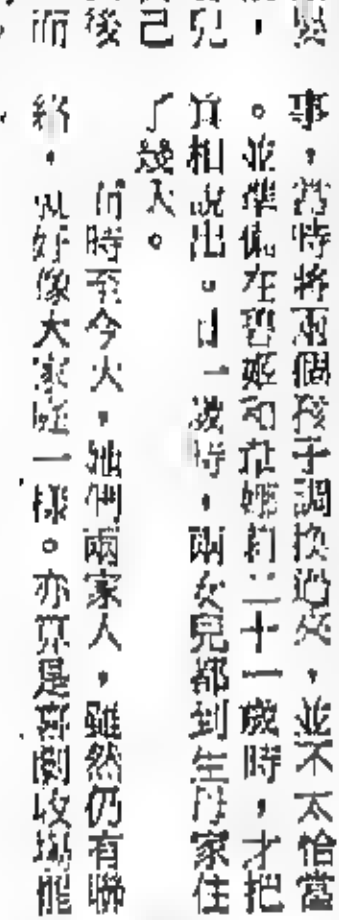 事，當時將兩個孩子調換過來，並不太恰當
。並準備在碧姬和茁姬約二十一歲時，才把
真相說出。日一歲時，兩女兒都到生母家住
了幾天。
而時至今天，她們兩家人，雖然仍有聯
絡，就好像大家庭一樣。亦算是喜劇收場罷
兒
己
後
而